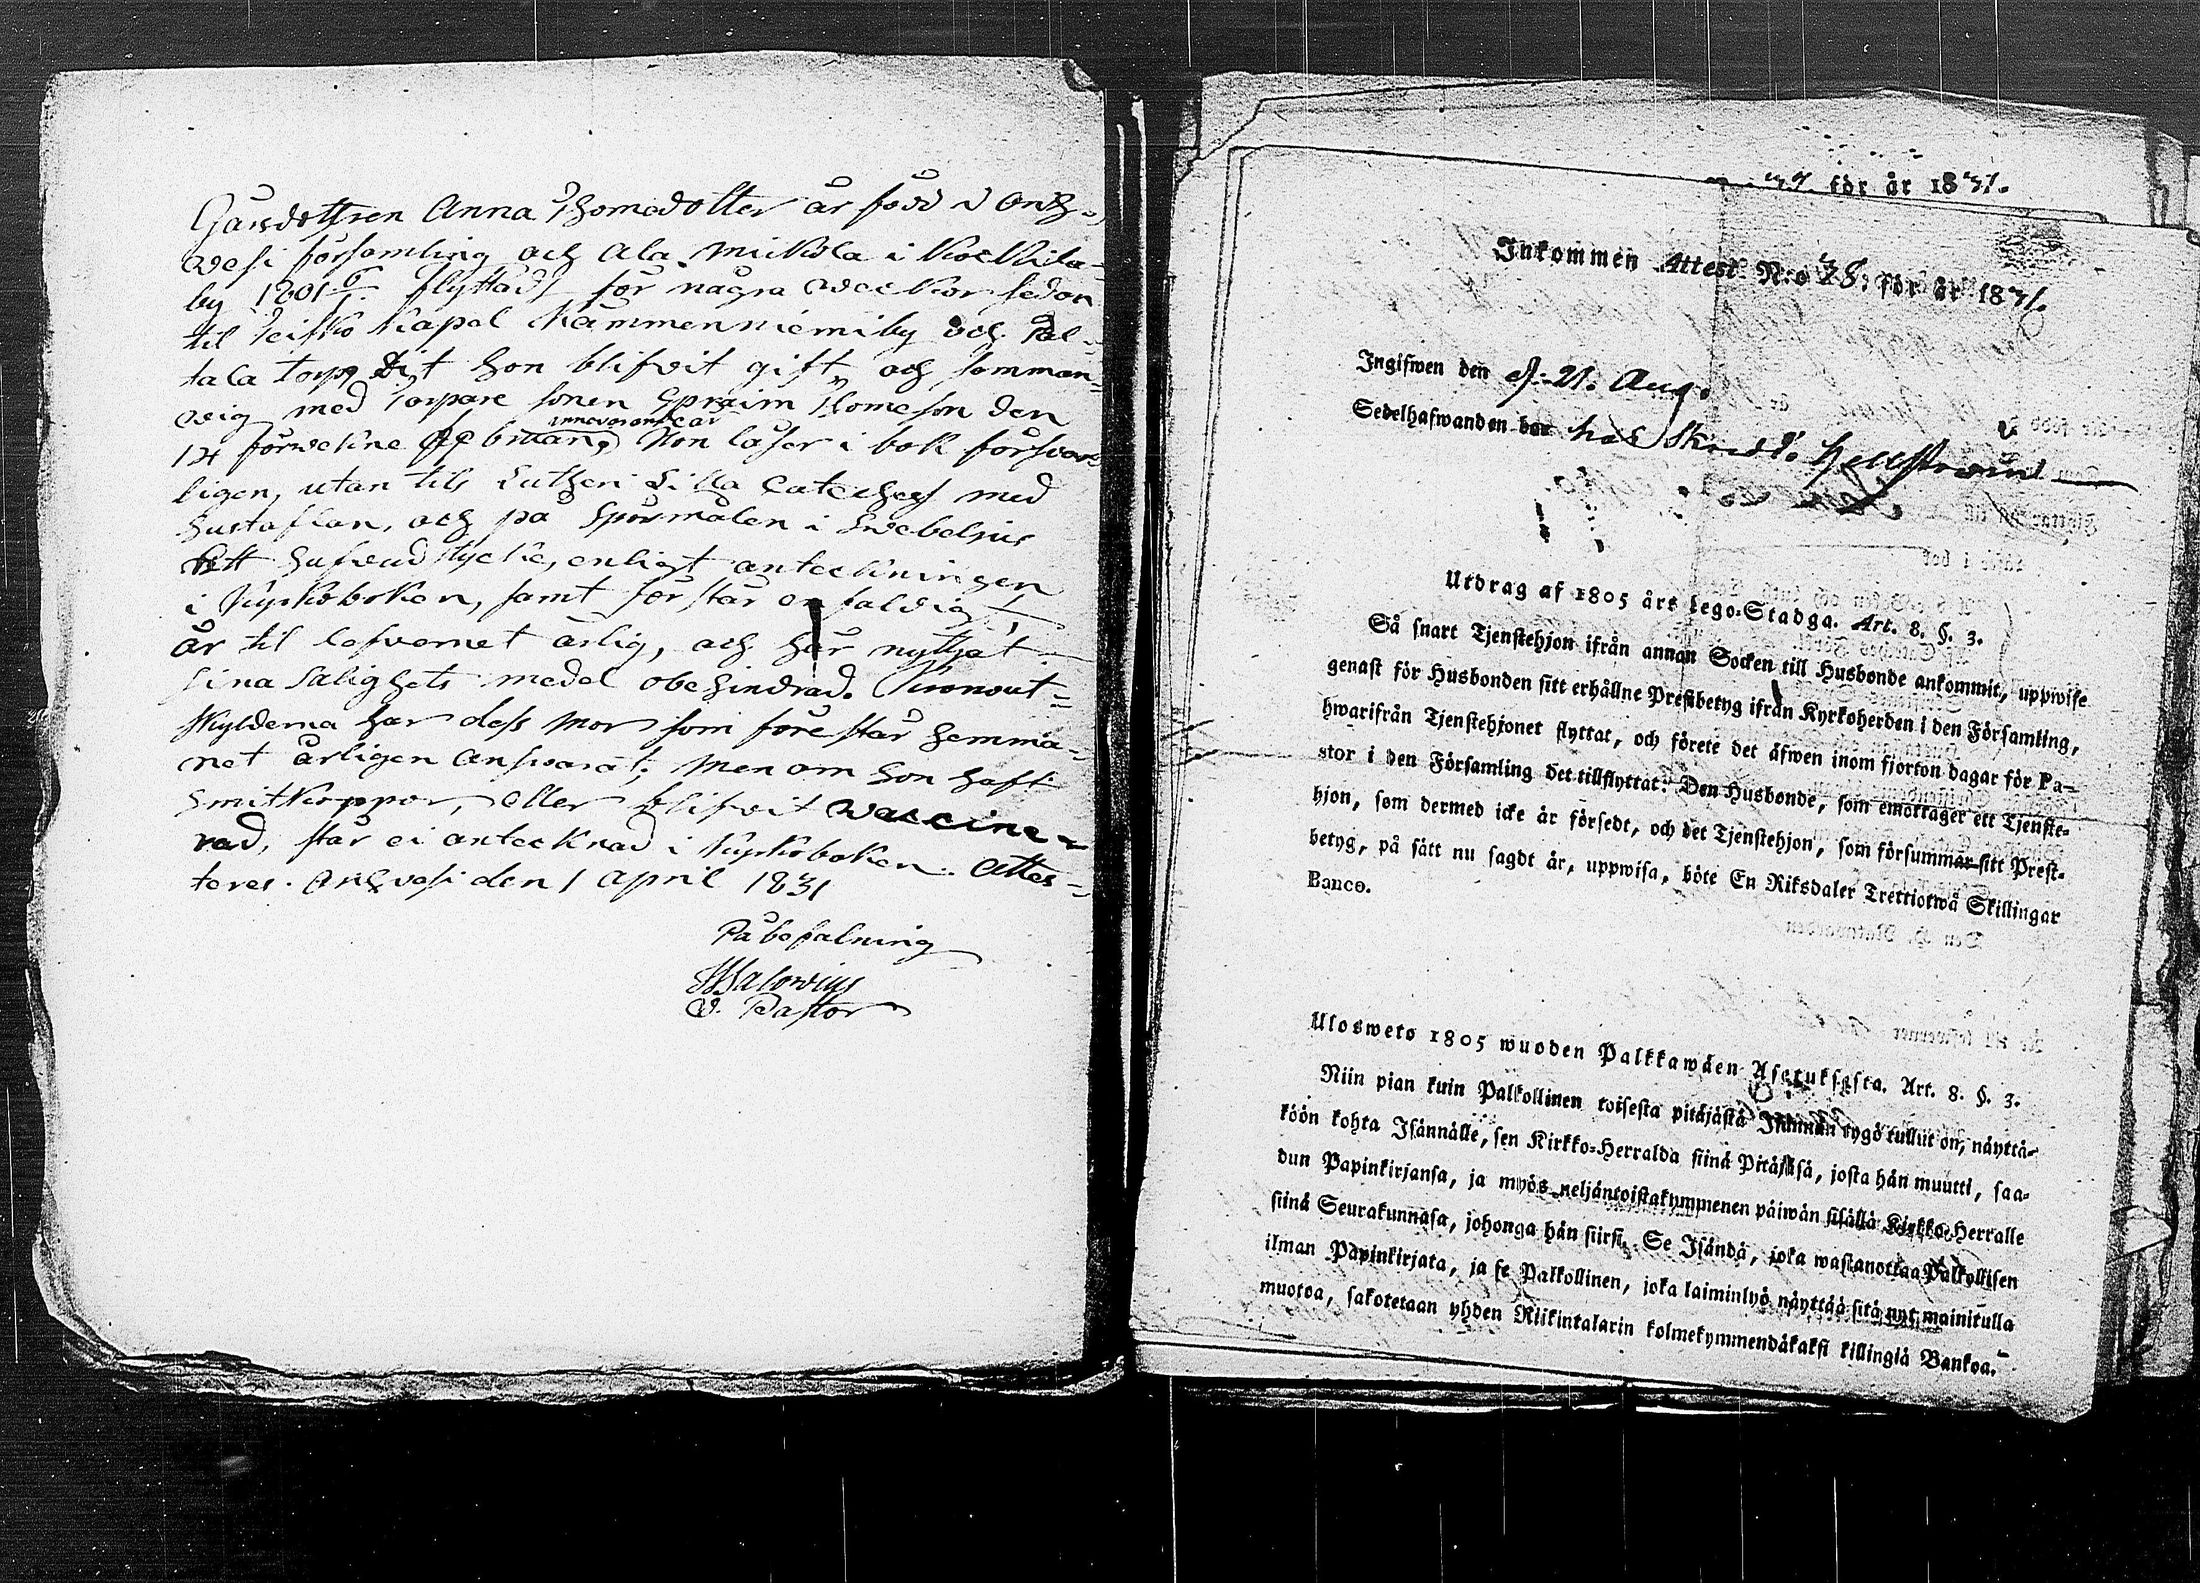 Gårdsdottren Anna Thomædotter är född i Orih-
wesi församling och Ala Mickola i Kockkila
by 1801 6/1. flyttade för några weckor sedan
til Teisko Kapel Kämmenniemi by och Pal-
tala torp, dit hon blifvit gift och samman-
vigd med Torpare sonen Ephraim Thomeson den
innevarande år
14 förwekne Februari, Hon läser i bok försvar-
ligen, utan til Lutheri Lilla Cateches med
Hustaflan, och på Spörsmålen i Svebelius
Ett hufvudstycke, enligt anteckningen
i Kyrkoboken, samt förstår enfaldig
är til lefvernet ärlig, och har nyttjat
sina Salighets medel obehindrad. Kronout-
skylderna har dess Mor som förestår hemma-
net årligen ansvarat; Men om hon haft
Smitkoppor, eller blifvit waccine-
rad, står ei antecknad i Kyrkoboken. Attes-
teres. Orihvesi den 1 April 1831
På befalning
HSalovius
V. Pastor
37 för år 1831.
Inkommen Attest N:o 28: för år 1831.
Ingifwen den d. 21. Aug.
Sedelhafwanden har hos
Utdrag af 1805 års Lego-Stadga. Art. 8. §. 3.
Så snart Tjenstehjon ifrån annan Socken till Husbonde ankommit, uppwise
genast för Husbonden sitt erhållne Prestbetyg ifrån Kyrkoherden i den Församling,
hwarifrån Tjenstehjonet flyttat, och förete det äfwen inom fjorton dagar för Pa-
stor i den Församling det tillflyttat: Den Husbonde, som emottager ett Tjenste-
hjon, som dermed icke är försedt, och det Tjenstehjon, som försummar sitt Prest-
betyg, på sätt nu sagdt är, uppwisa, böte En Riksdaler Trettiotwå Skillingar
Banco.
Ulosweto 1805 wuoden Palkkawäen Asetuksesta. Art. 8. §. 3.
Niin pian kuin Palkollinen toisesta pitäjästä Isännän tygö tullut on, näyttä-
köön kohta Isännälle, sen Kirkko-Herralda siinä Pitäjäsä, josta hän muutti, saa-
dun Papinkirjansa, ja myös neljäntoistakymmenen päiwän sisällä Kirkko-Herralle
siinä Seurakunnasa, johonga hän siirsi. Se Isändä, joka wastanottaa Palkollisen
ilman Papinkirjata, ja se Palkollinen, joka laiminlyö näyttää sitä nyt mainitulla
muotoa, sakotetaan yhden Riikintalarin kolmekymmendäkaksi killingiä Bankoa.